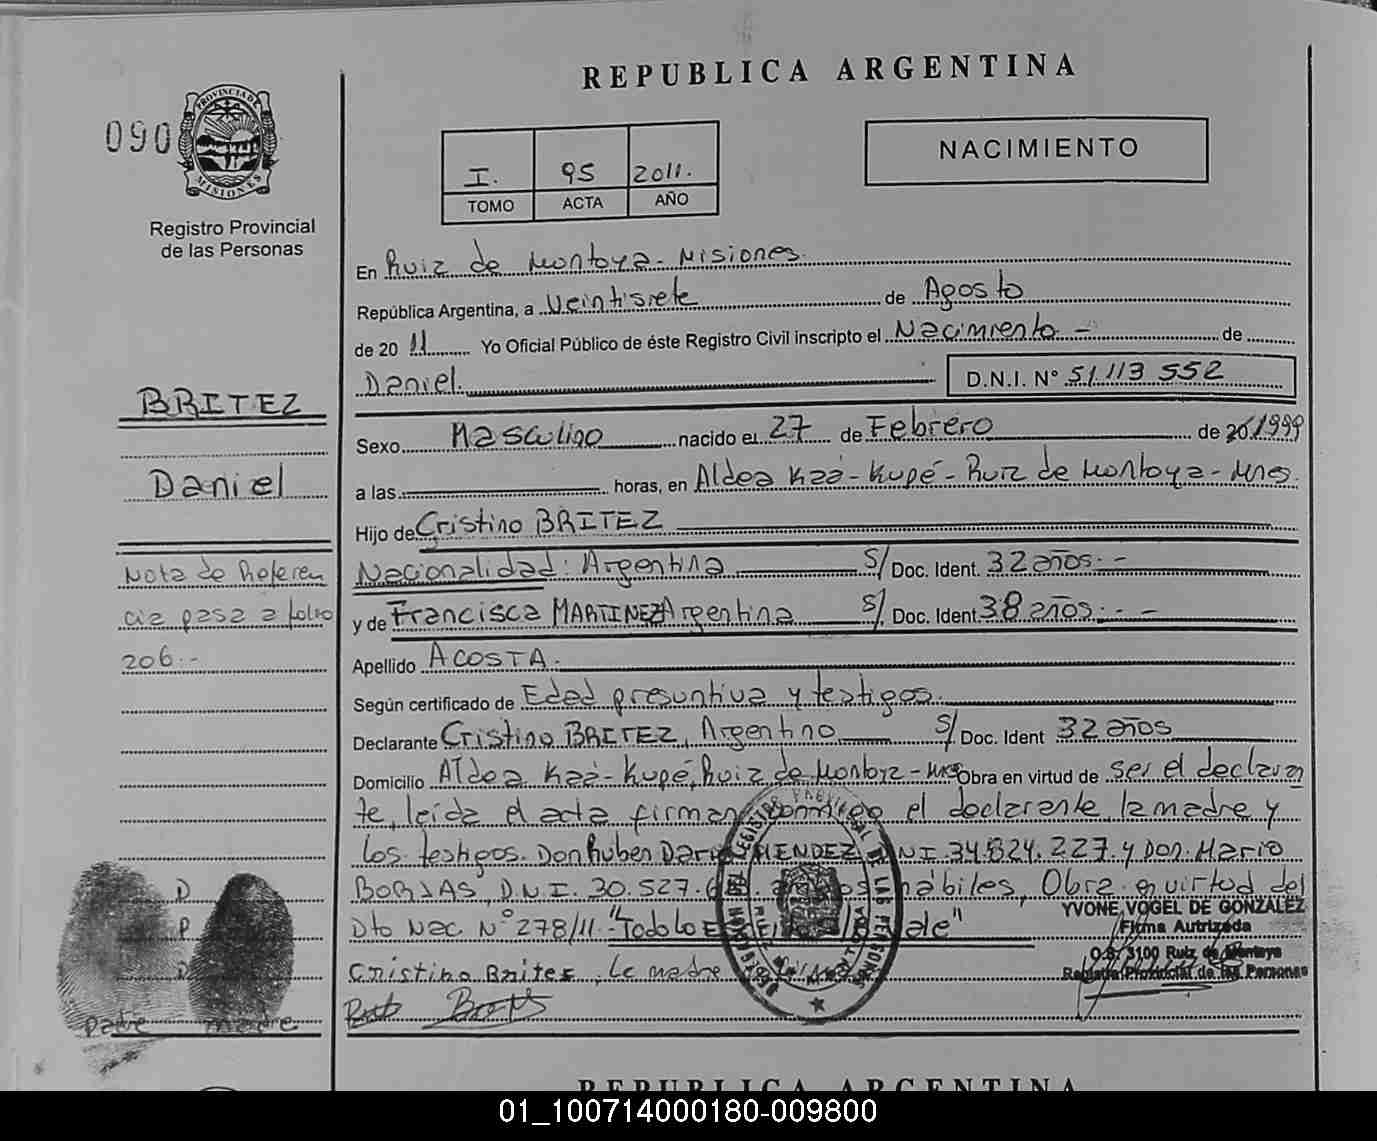 REPUBLICA ARGENTINA
090
PROVINCIA DE
MISIONES
Registro Provincial
de las Personas
I. 95 2011.
TOMO ACTA AÑO
NACIMIENTO
En Ruiz de Montoya - Misiones.
República Argentina, a Veintisiete de Agosto
de 20 11 Yo Oficial Público de éste Registro Civil inscripto el Nacimiento - de
Daniel. D.N.I. Nº 51 113 552
BRITEZ
Daniel
Sexo Masculino nacido el 27 de Febrero de 1999
a las horas, en Aldea Kaá-Kupé-Ruiz de Montoya-Mnes.
Hijo de Cristino BRITEZ
Nacionalidad: Argentina S/ Doc. Ident. 32 años.-
y de Francisca MARTINEZ Argentina S/ Doc. Ident 38 años.-
Apellido ACOSTA.
Según certificado de Edad presuntiva y testigos.
Declarante Cristino BRITEZ, Argentino S/ Doc. Ident 32 años
Domicilio Aldea Kaá-Kupé, Ruiz de Montoya-Mnes Obra en virtud de ser el declaran
te, leída el acta firman conmigo el declarante, la madre y
los testigos. Don Ruben Dario MENDEZ DNI. 34.824.227. y Don. Mario
BORJAS, D.N.I. 30.527. hábiles, Obra en virtud del
Dto Nac Nº 278/11-"Todo lo vale"
Cristino Britez, La madre
Nota de Referen
cia pasa a folio
206.-
D
P
D
padre madre
YVONE VOGEL DE GONZALEZ
Firma Autrizada
O.S. 3100 Ruiz de Montoya
Registro Provincial de las Personas
REGISTRO PROVINCIAL DE LAS PERSONAS
REPUBLICA ARGENTINA
01_100714000180-009800